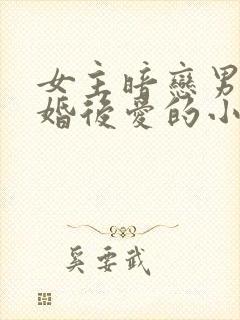 女主暗戀男
婚後愛的小
奚要武